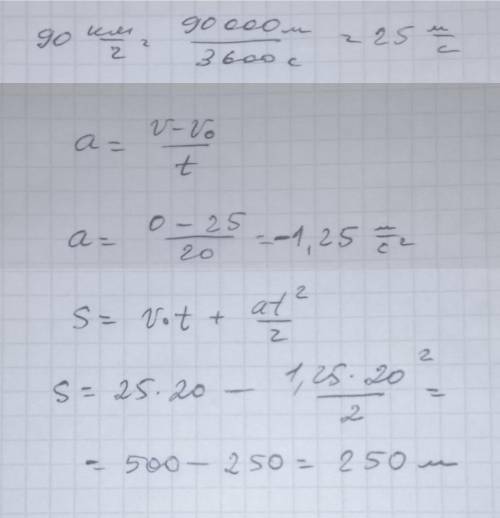 90 км/ч = 90000м/3600с = 25 м/с
a = v-v₀/t
a = 0-25/20 = -1,25 м/с²
S = v₀t + at²/2
S = 25·20 - 1,25·20²/2 =
= 500 - 250 = 250 м